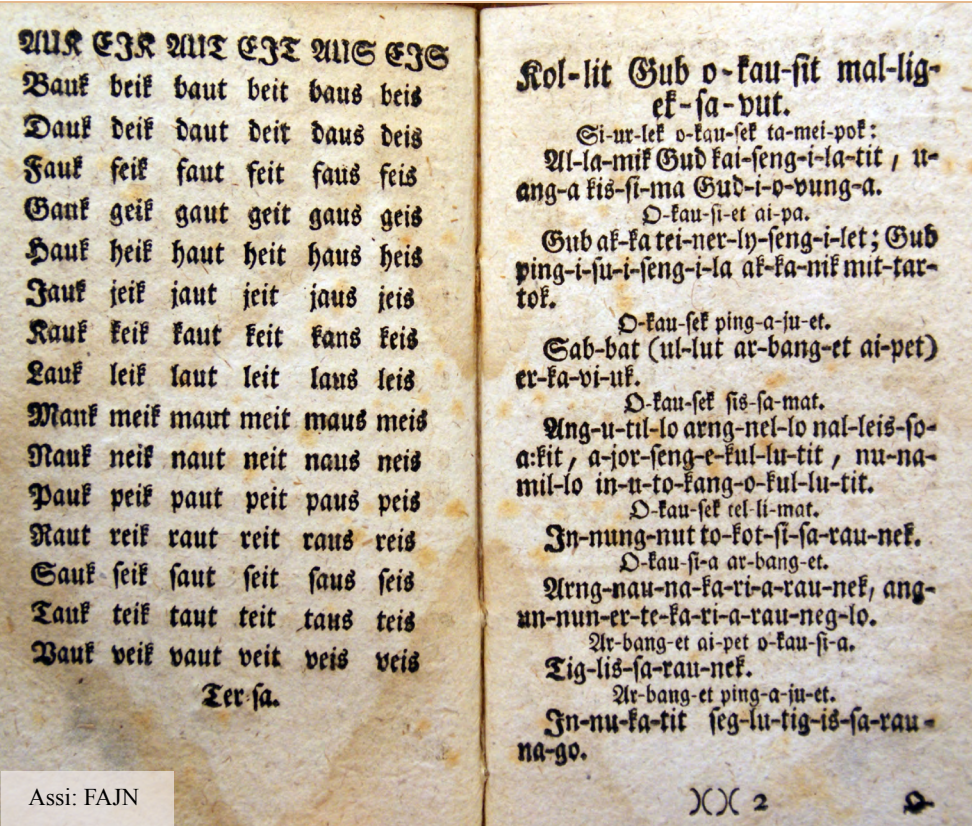 AUK EIK AUT EIT AUS EIS
Bauk beik baut beit baus beis
Dauk deik daut deit daus deis
Fauk feik faut feit faus feis
Gauk geik gaut geit gaus geis
Hauk heik haut heit haus heis
Jauk jeik jaut jeit jaus jeis
Kauk keik kaut keit kaus keis
Lauk leik laut leit laus leis
Mauk meik maut meit maus meis
Nauk neik naut neit naus neis
Pauk peik paut peit paus peis
Raut reik raut reit raus reis
Sauk seik saut seit saus seis
Tauk teik taut teit taus teis
Vauk veik vaut veit veis veis
Ter-sa.
Kol-lit Gub o-kau-sit mal-lig-
ek-sa-vut.
Si-ur-lek o-kau-sek ta-mei-pok:
Al-la-mik Gud kai-seng-i-la-tit, u-
ang-a kis-si-ma Gud-i-o-vung-a.
O-kau-si-et ai-pa.
Gub ak-ka tei-ner-ly-seng-i-let; Gub
ping-i-su-i-seng-i-la ak-ka-nik mit-tar-
tok.
O-kau-sek ping-a-ju-et.
Sab-bat (ul-lut ar-bang-et ai-pet)
er-ka-vi-uk.
O-kau-sek sis-sa-mat.
Ang-u-til-lo arng-nel-lo nal-leis-so-
a:kit, a-jor-seng-e-kul-lu-tit, nu-na-
mil-lo in-u-to-kang-o-kul-lu-tit.
O-kau-sek tel-li-mat.
In-nung-nut to-kot-si-sa-rau-nek.
O-kau-si-a ar-bang-et.
Arng-nau-na-ka-ri-a-rau-nek, ang-
un-nun-er-te-ka-ri-a-rau-neg-lo.
Ar-bang-et ai-pet o-kau-si-a.
Tig-lis-sa-rau-nek.
Ar-bang-et ping-a-ju-et.
In-nu-ka-tit seg-lu-tig-is-sa-rau-
na-go.
)()( 2
Assi: FAJN